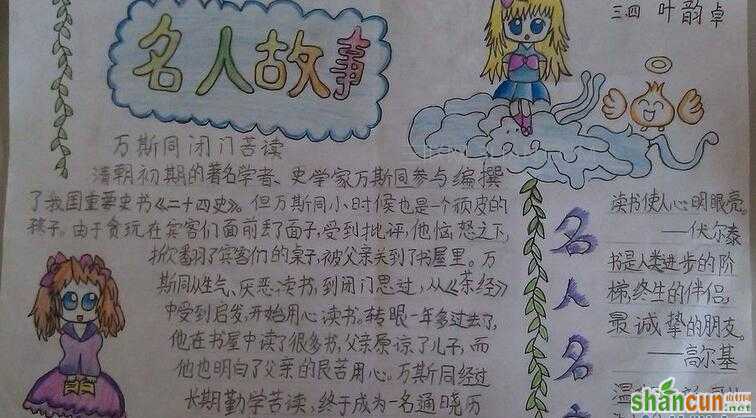 名人故事
三.四 叶韵卓
万斯同闭门苦读
清朝初期的著名学者、史学家万斯同参与编撰
了我国重要史书《二十四史》。但万斯同小时候也是一个顽皮的
孩子。由于贪玩在宾客们面前丢了面子,受到批评,他恼怒之下,
掀翻了宾客们的桌子,被父亲关到了书屋里。万
斯同从生气、厌恶读书,到闭门思过,从《茶经》
中受到启发,开始用心读书。转眼一年多过去了,
他在书屋中读了很多书,父亲原谅了儿子,而
他也明白了父亲的良苦用心。万斯同经过
长期勤学苦读,终于成为一名通晓历
名
人
名
读书使人心明眼亮。
——伏尔泰
书是人类进步的阶
梯,终生的伴侣,
最诚挚的朋友。
——高尔基
温
shancun